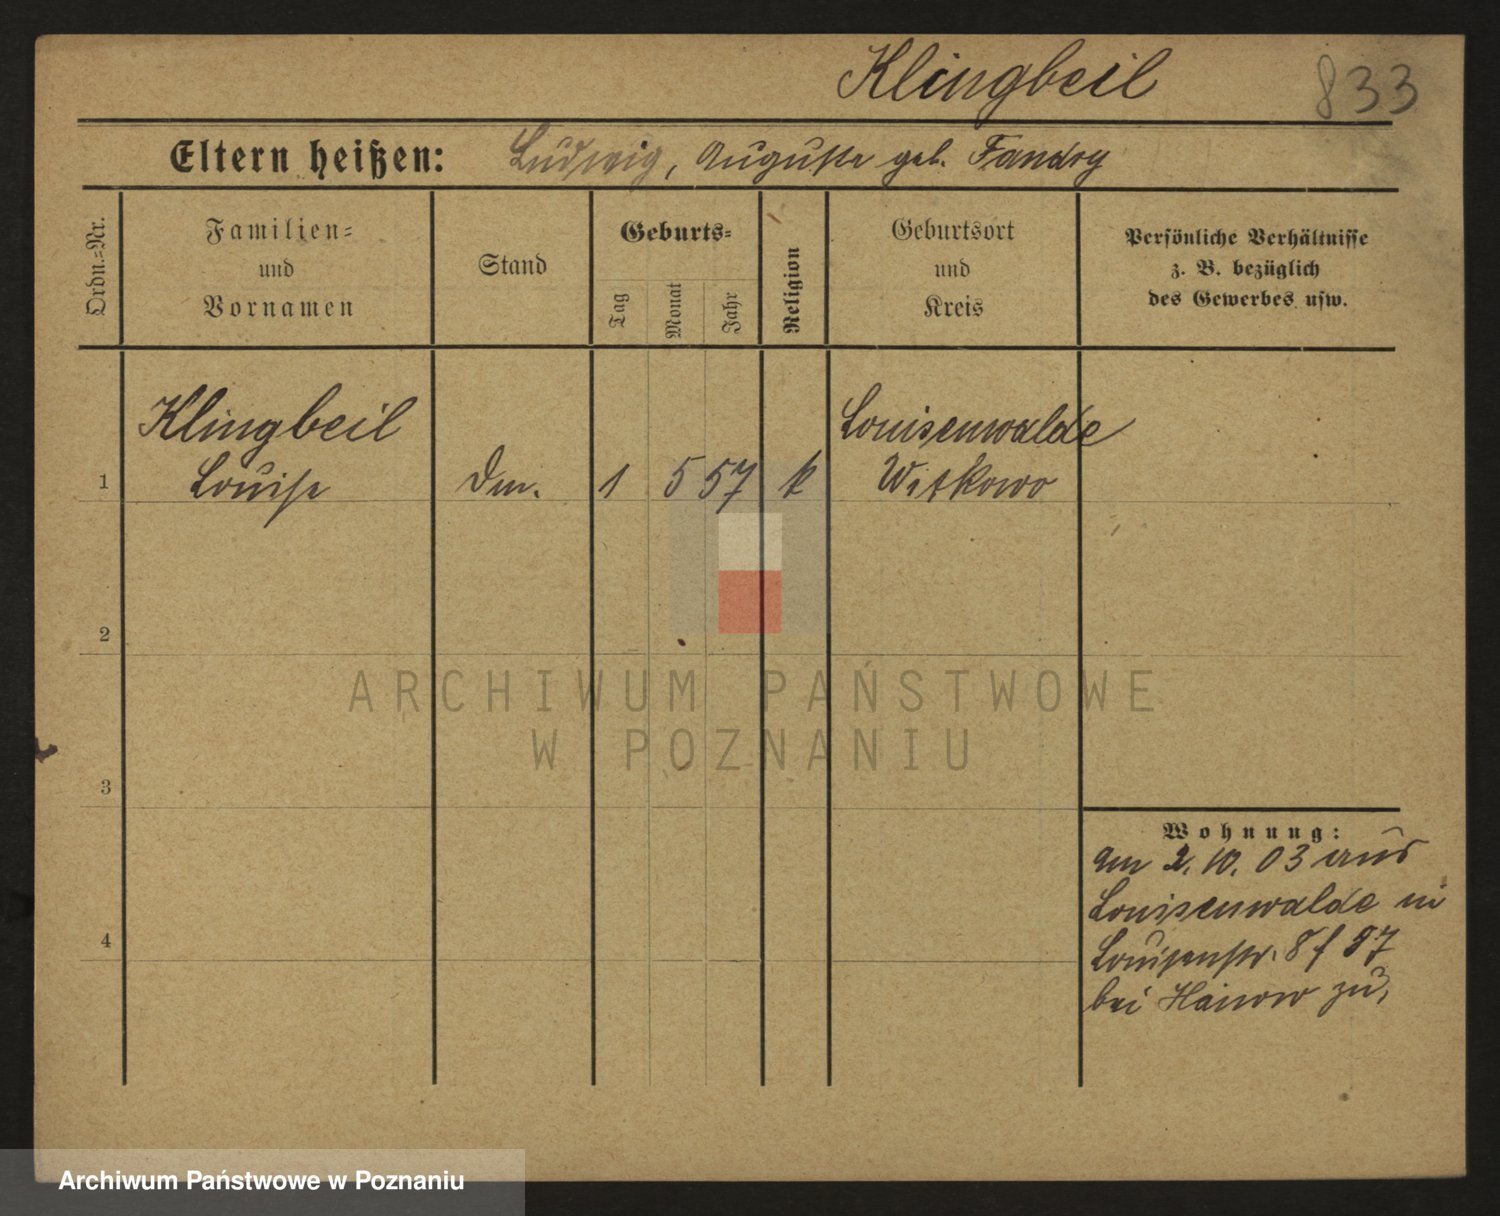 Klingbeil 833
Eltern heißen: Ludwig, Auguste geb. Fandry
Ordn.-Nr.
Familien-
und
Vornamen
Stand
Geburts-
Tag
Monat
Jahr
Religion
Geburtsort
und
Kreis
Persönliche Verhältnisse
z. B. bezüglich
des Gewerbes usw.
Klingbeil Louisenwalde
1 Louise 1 5 57 k Witkowo
2
ARCHIWUM PAŃSTWOWE
W POZNANIU
3
Wohnung:
am 2. 10. 03 aus
Louisenwalde in
Louisenstr. 8
bei zu,
4
Archiwum Państwowe w Poznaniu